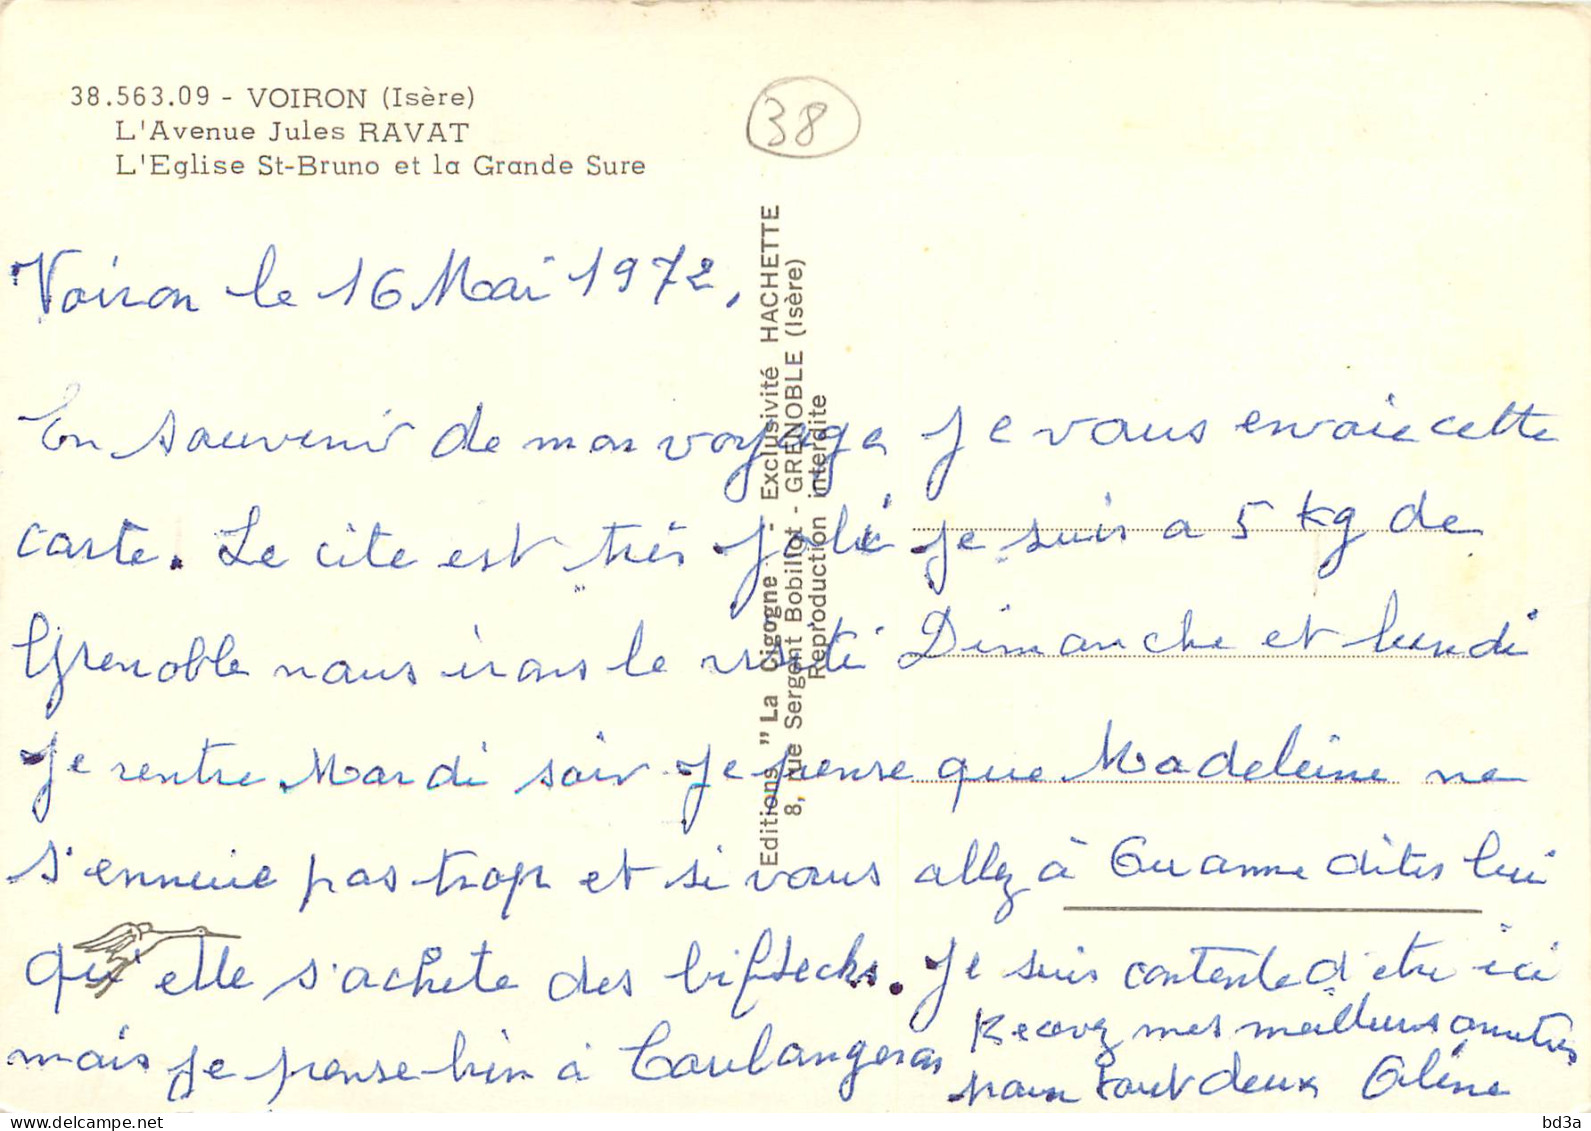 38.563.09 - VOIRON (Isère)
L'Avenue Jules RAVAT
L'Eglise St-Bruno et la Grande Sure
38
Editions " La Cigogne " - Exclusivité HACHETTE
8, rue Sergent Bobillot - GRENOBLE (Isère)
Reproduction interdite
Voiron le 16 Mai 1972,
En souvenir de mon voyage je vous envoie cette
carte. Le cite est très jolie je suis a 5 kg de
Grenoble nous irons le visité Dimanche et lundi
Je rentre Mardi soir Je pense que Madeleine ne
s'ennuie pas trop et si vous allez à dites lui
qu'elle s'achète des bifstecks. Je suis contente d'etre ici
mais je pense bien à Coulangeron
Recevez mes meilleurs amitiés
pour tout deux
delcampe.net
bd3a